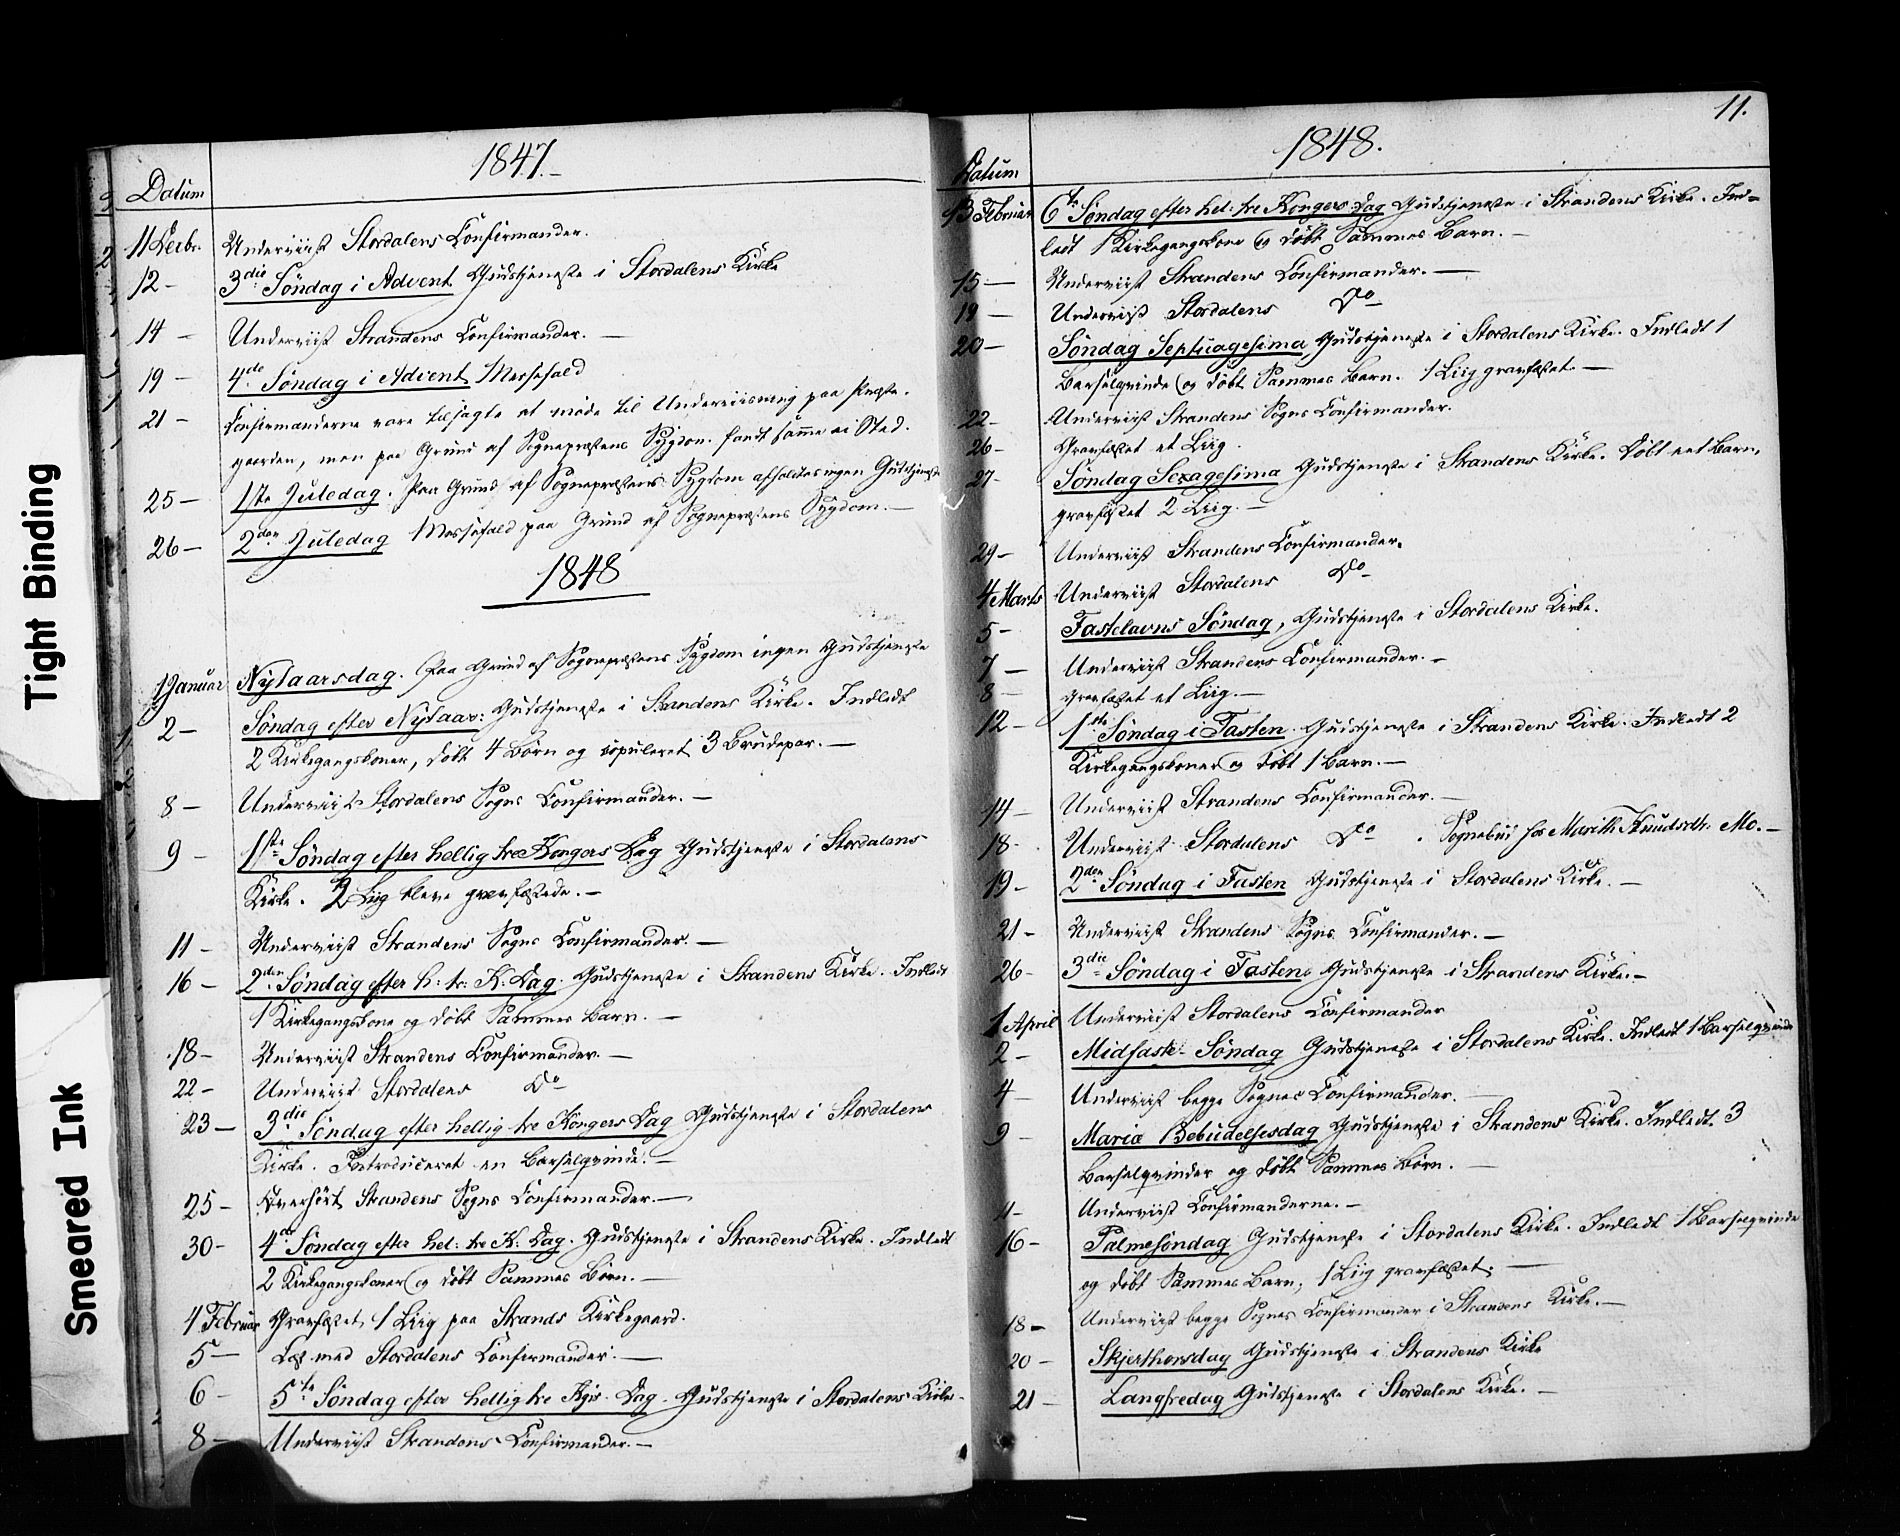 Tight Binding
Smeared Ink
1847.-
Datum
11 Decbr. Underviist Stordalens Confirmander.
12- 3die Søndag i Advent Gudstjeneste i Stordalens Kirke
14 - Underviist Strandens Confirmander. -
19 - 4de Søndag i Advent Messefald
21 - Confirmanderne vare tilsagte at møde til Underviisning paa Præste-
gaarden, men paa Grund af Sognepræstens Sygdom fandt samme ei Sted.
25- 1ste Juledag. Paa Grund af Sognepræstens Sygdom afholdtes ingen Gudstjeneste
26- 2den Juledag Messefald paa Grund af Sognepræstens Sygdom.-
1848
1 Januar Nytaarsdag. Paa Grund af Sognepræstens Sygdom ingen Gudstjeneste
2- Søndag efter Nytaar: Gudstjeneste i Strandens Kirke. Indledt
2 Kirkegangskoner, døbt 4 Børn og copuleret 3 Brudepar.-
8- Underviist Stordalens Sogns Confirmander.-
9- 1ste Søndag efter hellig tre Kongers Dag Gudstjeneste i Stordalens
Kirke. 2 Liig bleve gravfæstede.-
11- Underviist Strandens Sogns Confirmander.-
16- 2den Søndag efter h: tr: K. Dag. Gudstjeneste i Strandens Kirke. Indledt
1 Kirkegangskone og døbt Sammes Barn.-
18- Underviist Strandens Confirmander.-
22- Underviist Stordalens Do-
23- 3die Søndag efter hellig tre Kongers Dag Gudstjeneste i Stordalens
Kirke. Introduceret en Barselqvinde.-
25- Overhørt Strandens Sogns Confirmander.-
30- 4de Søndag efter hel: tre K: Dag. Gudstjeneste i Strandens Kirke. Indledt
2 Kirkegangskoner og døbt Sammes Børn.-
4 Februar Gravfæstet 1 Liig paa Strands Kirkegaard.
5- Læst med Stordalens Confirmander.-
6- 5te Søndag efter hellig tre Kgrs Dag. Gudstjeneste i Stordalens Kirke-
8- Underviist Strandens Confirmander.-
11.
1848.
Datum
13 Februar 6te Søndag efter hel: tre Kongers Dag Gudstjeneste i Strandens Kirke. Ind-
ledt 1 Kirkegangskone og døbt Sammes Barn.-
15- Underviist Strandens Confirmander.-
19- Underviist Stordalens Do-
20- Søndag Septuagesima Gudstjeneste i Stordalens Kirke. Indledt 1
Barselqvinde og døbt Sammes Barn. 1 Liig gravfæstet-
22- Underviist Strandens Sogns Confirmander.
26- Gravfæstet et Liig.
27- Søndag Sexagesima Gudstjeneste i Strandens Kirke. Døbt eet Barn,
gravfæstet 2 Liig.-
29- Underviist Strandens Confirmander.
4 Marts Underviist Stordalens Do-
5- Fastelavns Søndag, Gudstjeneste i Stordalens Kirke.
7- Underviist Strandens Confirmander.-
8- Gravfæstet et Liig.-
12- 1ste Søndag i Fasten. Gudstjeneste i Strandens Kirke. Indledt 2
Kirkegangskoner og døbt 1 Barn.-
14- Underviist Strandens Confirmander.-
18- Underviist Stordalens Do-. Sognebud hos Marith Knudsdtr. Mo.-
19- 2den Søndag i Fasten Gudstjeneste i Stordalens Kirke.-
21- Underviist Strandens Sogns Confirmander.-
26- 3die Søndag i Fasten Gudstjeneste i Strandens Kirke.-
1 April Underviist Stordalens Confirmander
2- Midfaste-Søndag Gudstjeneste i Stordalens Kirke. Indledt 1 Barselqvinde
4- Underviist begge Sognes Confirmander.-
9- Mariæ Bebudelsesdag Gudstjeneste i Strandens Kirke. Indledt 3
Barselqvinder og døbt Sammes Børn.-
11- Underviist Confirmanderne.-
16- Palmesøndag Gudstjeneste i Stordalens Kirke. Indledt 1 Barselqvinde
og døbt Sammes Barn, 1 Liig gravfæstet.-
18- Underviist begge Sognes Confirmander i Strandens Kirke.-
20- Skjerthorsdag Gudstjeneste i Strandens Kirke
21- Langfredag Gudstjeneste i Stordalens Kirke.-